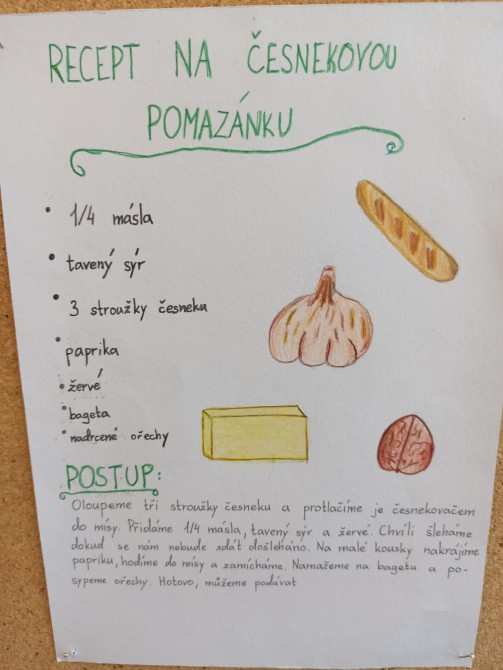 RECEPT NA ČESNEKOVOU
POMAZÁNKU
• 1/4 másla
• tavený sýr
• 3 stroužky česneku
• paprika
• žervé
• bageta
• nadrcené ořechy
POSTUP:
Oloupeme tři stroužky česneku a protlačíme je česnekovačem
do mísy. Přidáme 1/4 másla, tavený sýr a žervé. Chvíli šleháme
dokud se nám nebude zdát došleháno. Na malé kousky nakrájíme
papriku, hodíme do mísy a zamícháme. Namažeme na bagetu a po-
sypeme ořechy. Hotovo, můžeme podávat